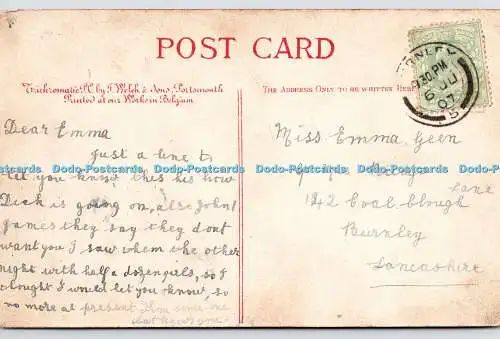 POST CARD
Trichromatic P.C. by J. Welch & Sons, Portsmouth
Printed at our Works in Belgium
THE ADDRESS ONLY TO BE WRITTEN HERE
BURNLEY
9.30 PM
JU
07
Dear Emma
Just a line to
let you know this his how
Dick is going on, also John
James they say they dont
want you I saw them the other
night with half a dozen girls, so I
thought I would let you know, so
no more at present
Im some one
that knows you
Miss Emma Green
Lane
142 Coal Clough
Burnley
Lancashire
Dodo-Postcards Dodo-Postcards Dodo-Postcards Dodo-Postcards